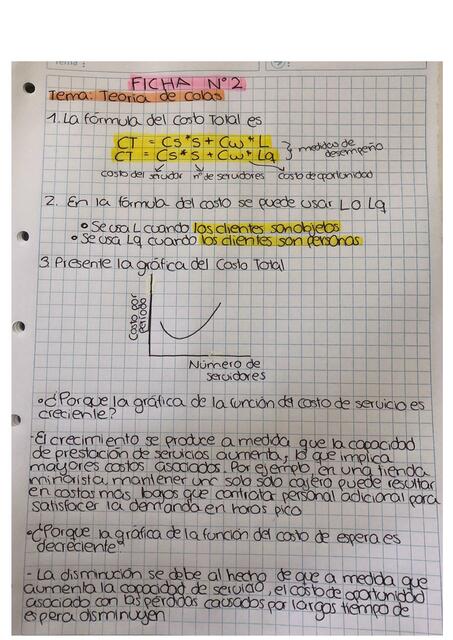 Tema :
FICHA Nº2
Tema: Teoría de colas
1. La fórmula del Costo Total es
CT = Cs * S + Cw * L
CT = Cs * S + Cw * Lq
} medidas de desempeño
costo del servidor nº de servidores costo de oportunidad
2. En la formula del costo se puede usar L o Lq
• Se usa L cuando los clientes son objetos
• Se usa Lq cuando los clientes son personas
3. Presente la gráfica del Costo Total
Costo por periodo
Número de
servidores
• ¿Porque la gráfica de la función del costo de servicio es
creciente?
- El crecimiento se produce a medida que la capacidad
de prestación de servicios aumenta, lo que implica
mayores costos asociados. Por ejemplo, en una tienda
minorista, mantener un solo cajero puede resultar
en costos más bajos que contratar personal adicional para
satisfacer la demanda en horas pico
• ¿Porque la gráfica de la función del costo de espera es
decreciente?
- La disminución se debe al hecho de que a medida que
aumenta la capacidad de servicio, el costo de oportunidad
asociado con las pérdidas causados por largos tiempo de
espera disminuyen